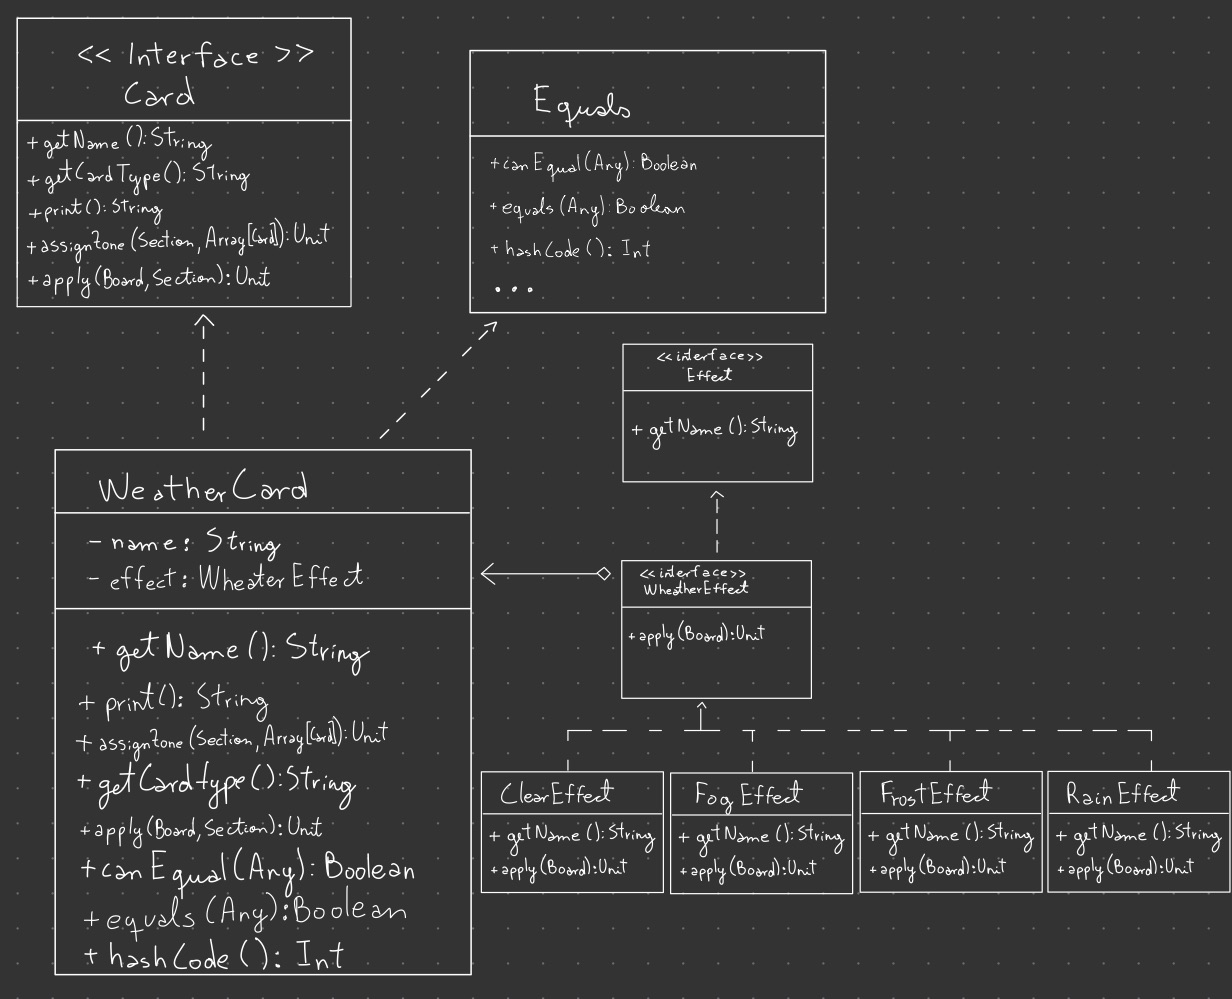 << Interface >>
Card
+ getName (): String
+ getCardType(): String
+ print(): String
+ assignZone (Section, Array[Card]): Unit
+ apply (Board, Section): Unit
Equals
+ canEqual (Any): Boolean
+ equals (Any): Boolean
+ hashCode (): Int
...
<<interface>>
Effect
+ getName (): String
WeatherCard
- name: String
- effect: WheaterEffect
+ getName (): String
+ print(): String
+ assignZone (Section, Array[Card]): Unit
+ getCardtype (): String
+ apply (Board, Section): Unit
+ canEqual (Any): Boolean
+ equals (Any): Boolean
+ hashCode (): Int
<<interface>>
WheatherEffect
+ apply (Board): Unit
ClearEffect
+ getName (): String
+ apply (Board): Unit
FogEffect
+ getName (): String
+ apply (Board): Unit
FrostEffect
+ getName (): String
+ apply (Board): Unit
RainEffect
+ getName (): String
+ apply (Board): Unit